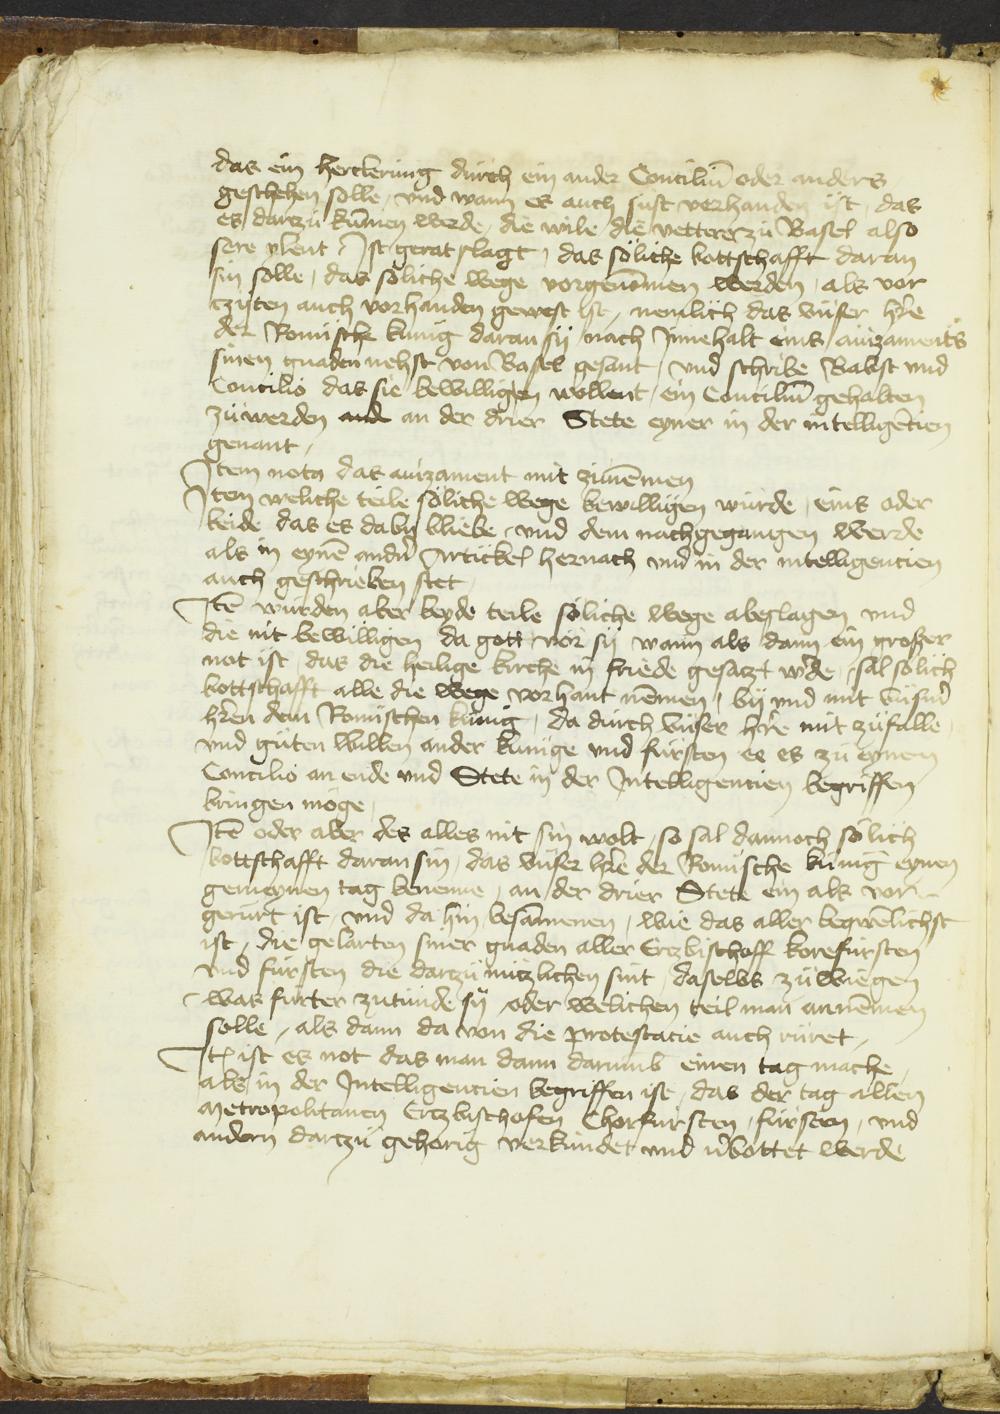 das ein herclerung durch ein ander Conciliū oder anders
geschehen solle, vnd wann es auch sust vorhanden ist, das
es dartzu kūmen werde, die wile die vetterer zu Basel also
sere ylent, Ist geratslagt, das söliche bottschafft daran
sin solle, das söliche wege vorgenōmen werden, als vor
czijten auch vorhanden gewest ist, nemlich das vnser h're
der Romische kunig daran sij nach Jnnehalt eins auizaments
sinen gnaden nehst von Basel gesant, vnd schribe Babst vnd
Concilio das sie bewilligen wollent, ein Conciliū gehalten
zu werden an der drier Stete eyner in der intelligētien
genant,
Item nota das auizament mit zunēmen
Item weliche teile söliche wege bewilligen wurde, eins oder
beide das es daby bliebe, vnd dem nachgegangen werde
als in eynē andn' Artickel hernach vnd in der intelligentien
auch geschrieben stet
Itē wurden aber beyde teile söliche wege abeslagen vnd
die nit bewilligen da gott vor sij, wann als dann ein großer
not ist, das die heilige kirche in friede gesatzt w'de, sal sölich
bottschafft alle die wege vorhant nēmen, bij vnd mit vnsn'
h'ren dem Romischen kunig, da durch vnser h're mit zufalle
vnd guten willen ander kunige vnd fursten ee es zu eynem
Concilio an ende vnd Stete in der Intelligentien begriffen
bringen möge,
Itē oder aber des alles nit sin wolt, so sal dannoch sölich
bottschafft daran sin, das vnser h're der Romische kunig eynen
gemeynen tag benenne, an der drier Stete ein als vor
gerurt ist, vnd da hin besammenen, wie das aller beqwēlichst
ist, die gelarten siner gnaden aller Ertzbischoff korefursten
vnd fursten die dartzu nutzlichen sint, daselbs zu wiegen
was furter zutunde sij, oder welichen teil man annēmen
solle, als dann da von die protestacie auch ruret,
It' ist es not das man dann darumb einen tag mache,
als in der Intelligentien begriffen ist, das der tag allen
Metropolitanen Ertzbischofen Chorfursten, fursten, vnd
andern dartzu gehorig verkundet vnd v'bottet werde